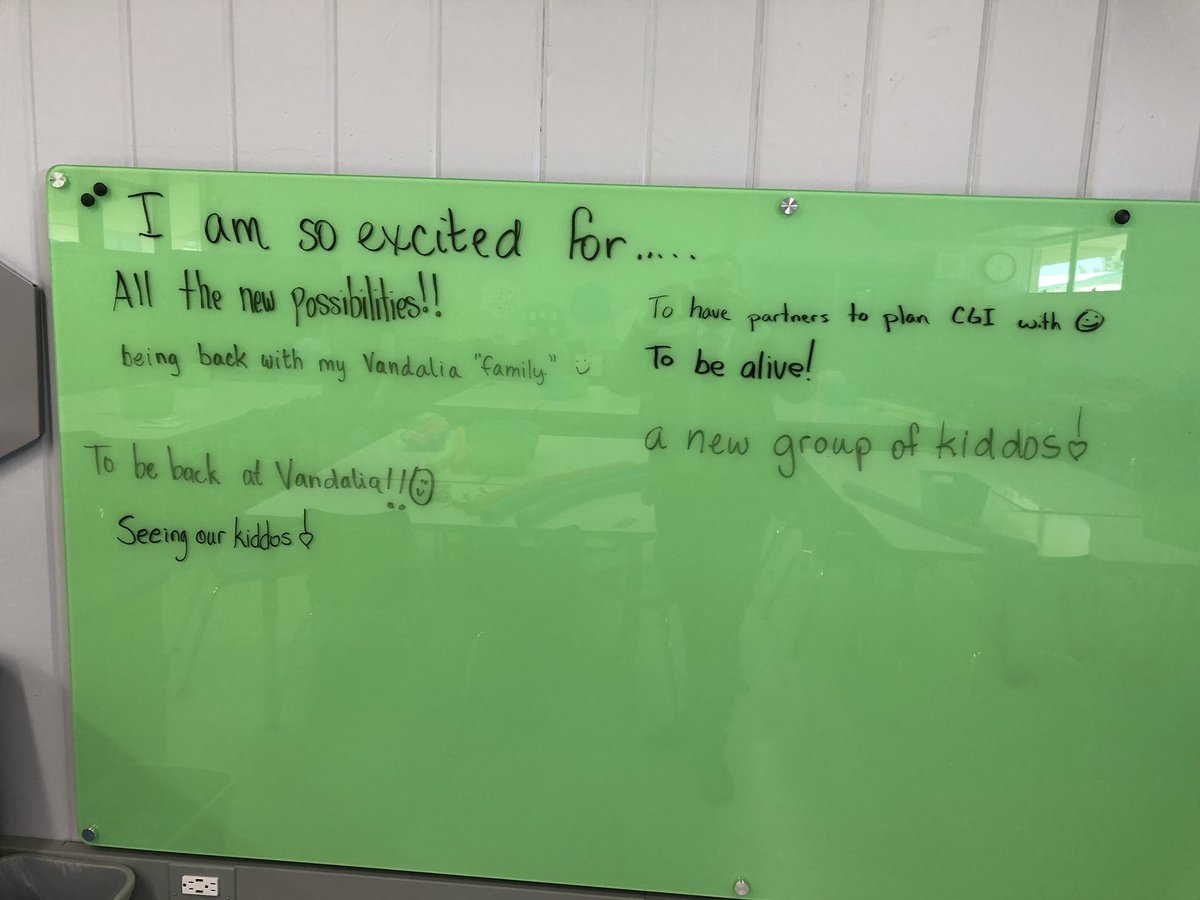 I am so excited for.....
All the new possibilities!!
being back with my Vandalia "family."
To be back at Vandalia!!
Seeing our kiddos!
To have partners to plan CGI with
To be alive!
a new group of kiddos!